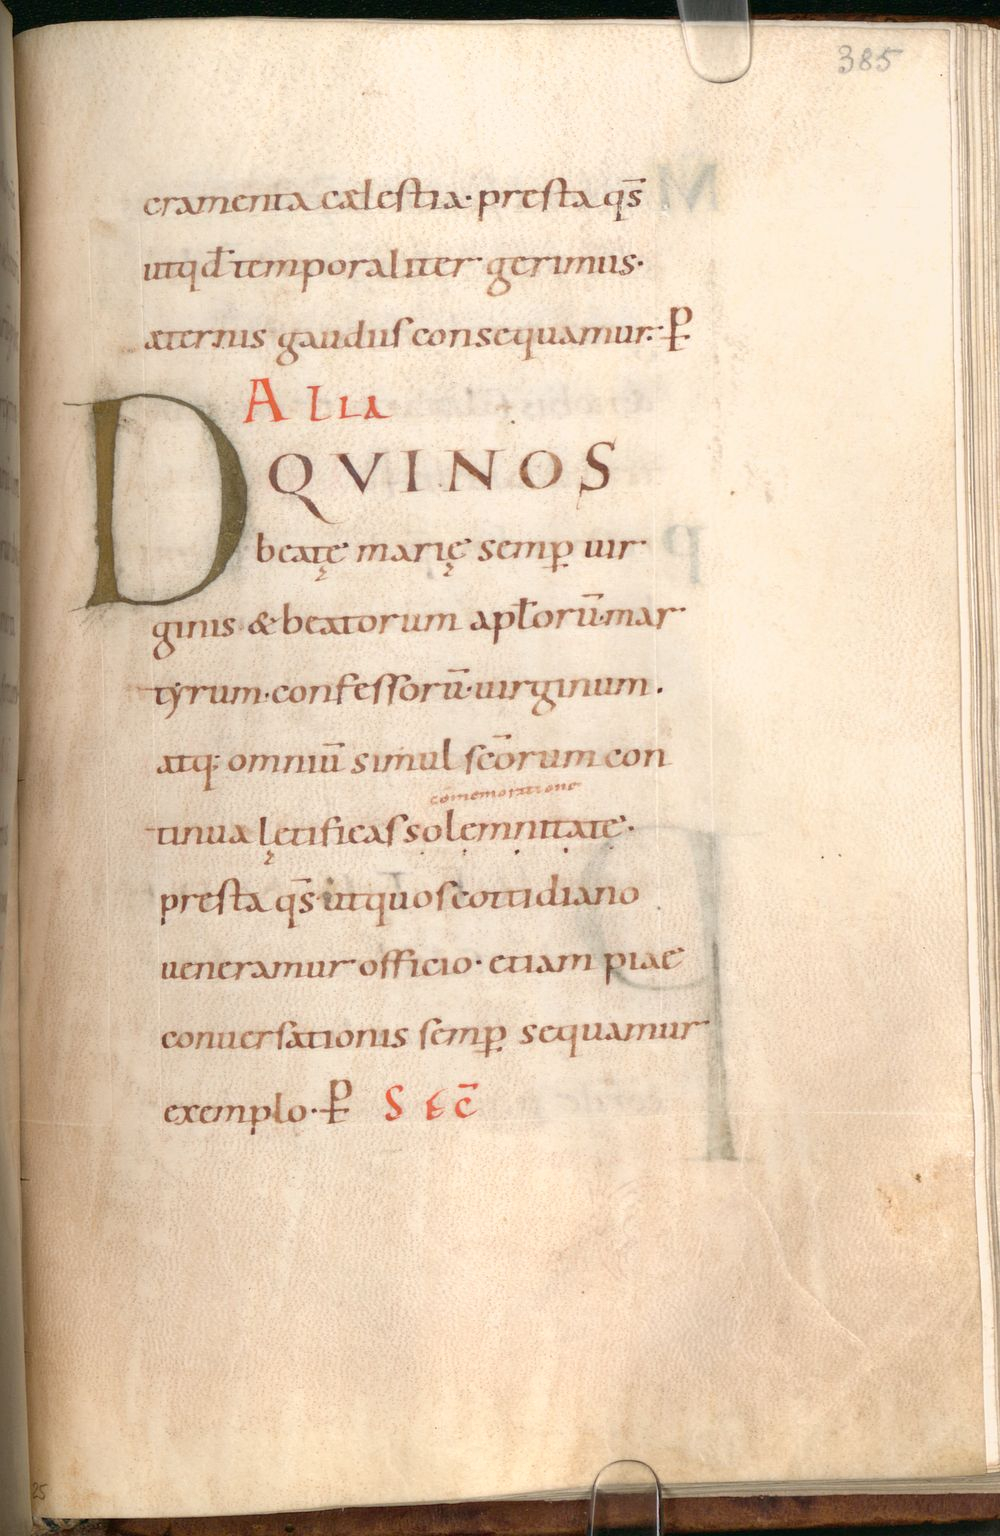 385
cramenta cælestia· presta qs̄
utqđ temporaliter gerimus·
æternis gaudiis consequamur·: P̵
A L I A
D QVINOS
beatę marię semꝑ uir
ginis & beatorum apƚorū· mar
tyrum· confessorū· uirginum·
atq; omniū simul sc̄orum con
cōmemoratione
tinua lętificas solemnitate·
presta qs̄· ut quos cottidiano
ueneramur officio· etiam piae
conuersationis semꝑ sequamur
exemplo· P̵ S E C̄
25